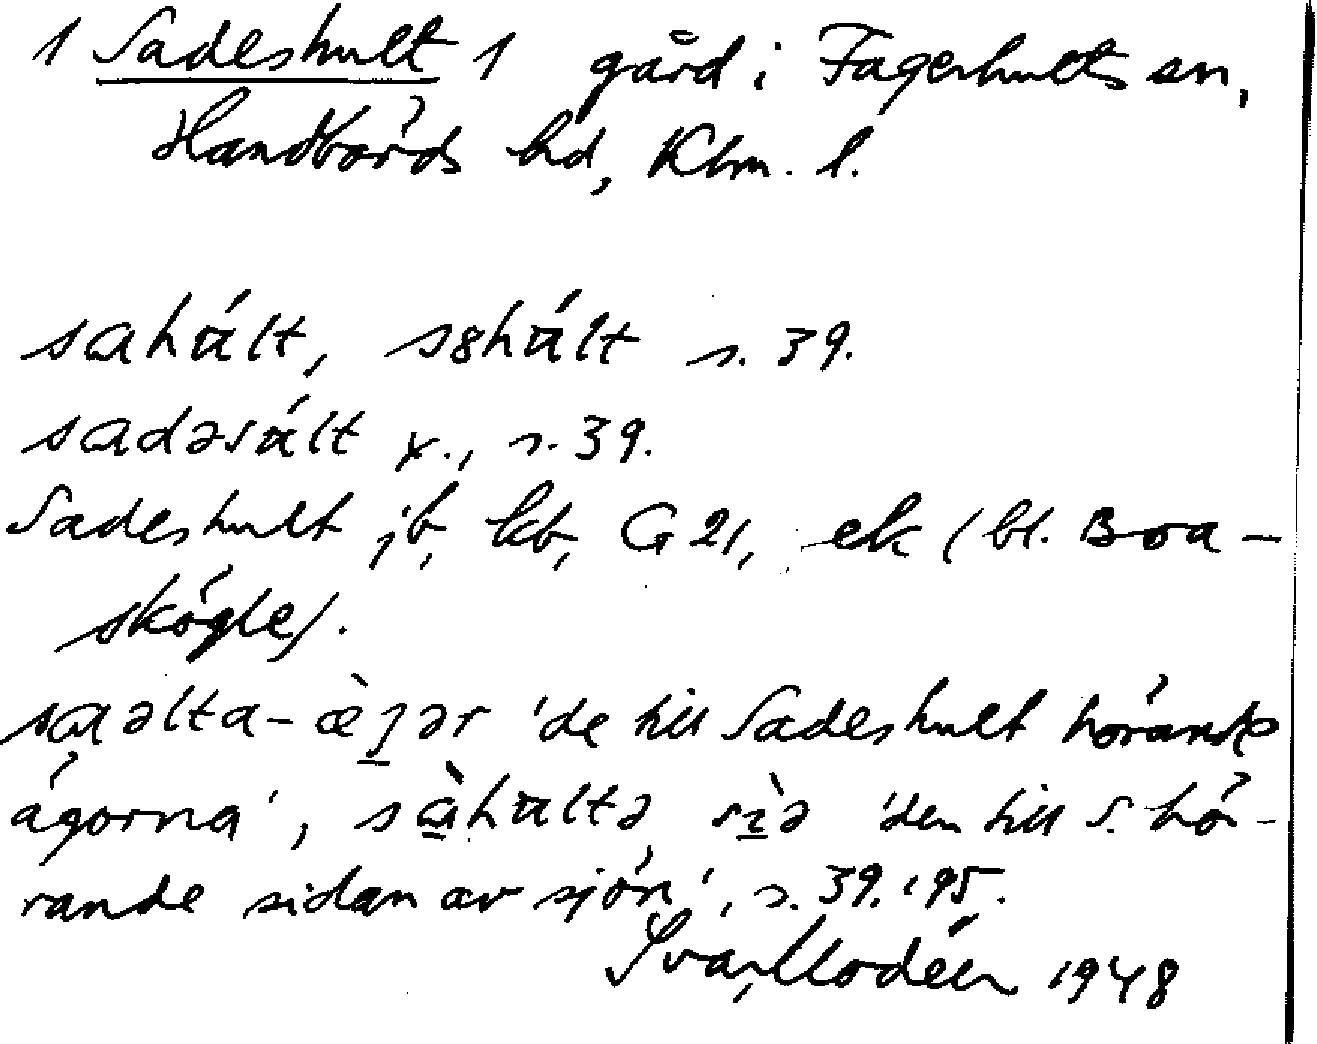 1 Sadeshult 1 gård i Fagerhults sn,
Handbörds hd, Klm. l.
sahált, sɞhált s. 39.
sadəsált y., s. 39.
Sadeshult jb, kb, G 21, ek (bl. Boa-
skögle).
saəlta-æ̀ʒər 'de till Sadeshult hörande
ägorna', sàhaltə sìə 'den till S. hö-
rande sidan av sjön', s. 39. '95.
Ivar Modéer 1948